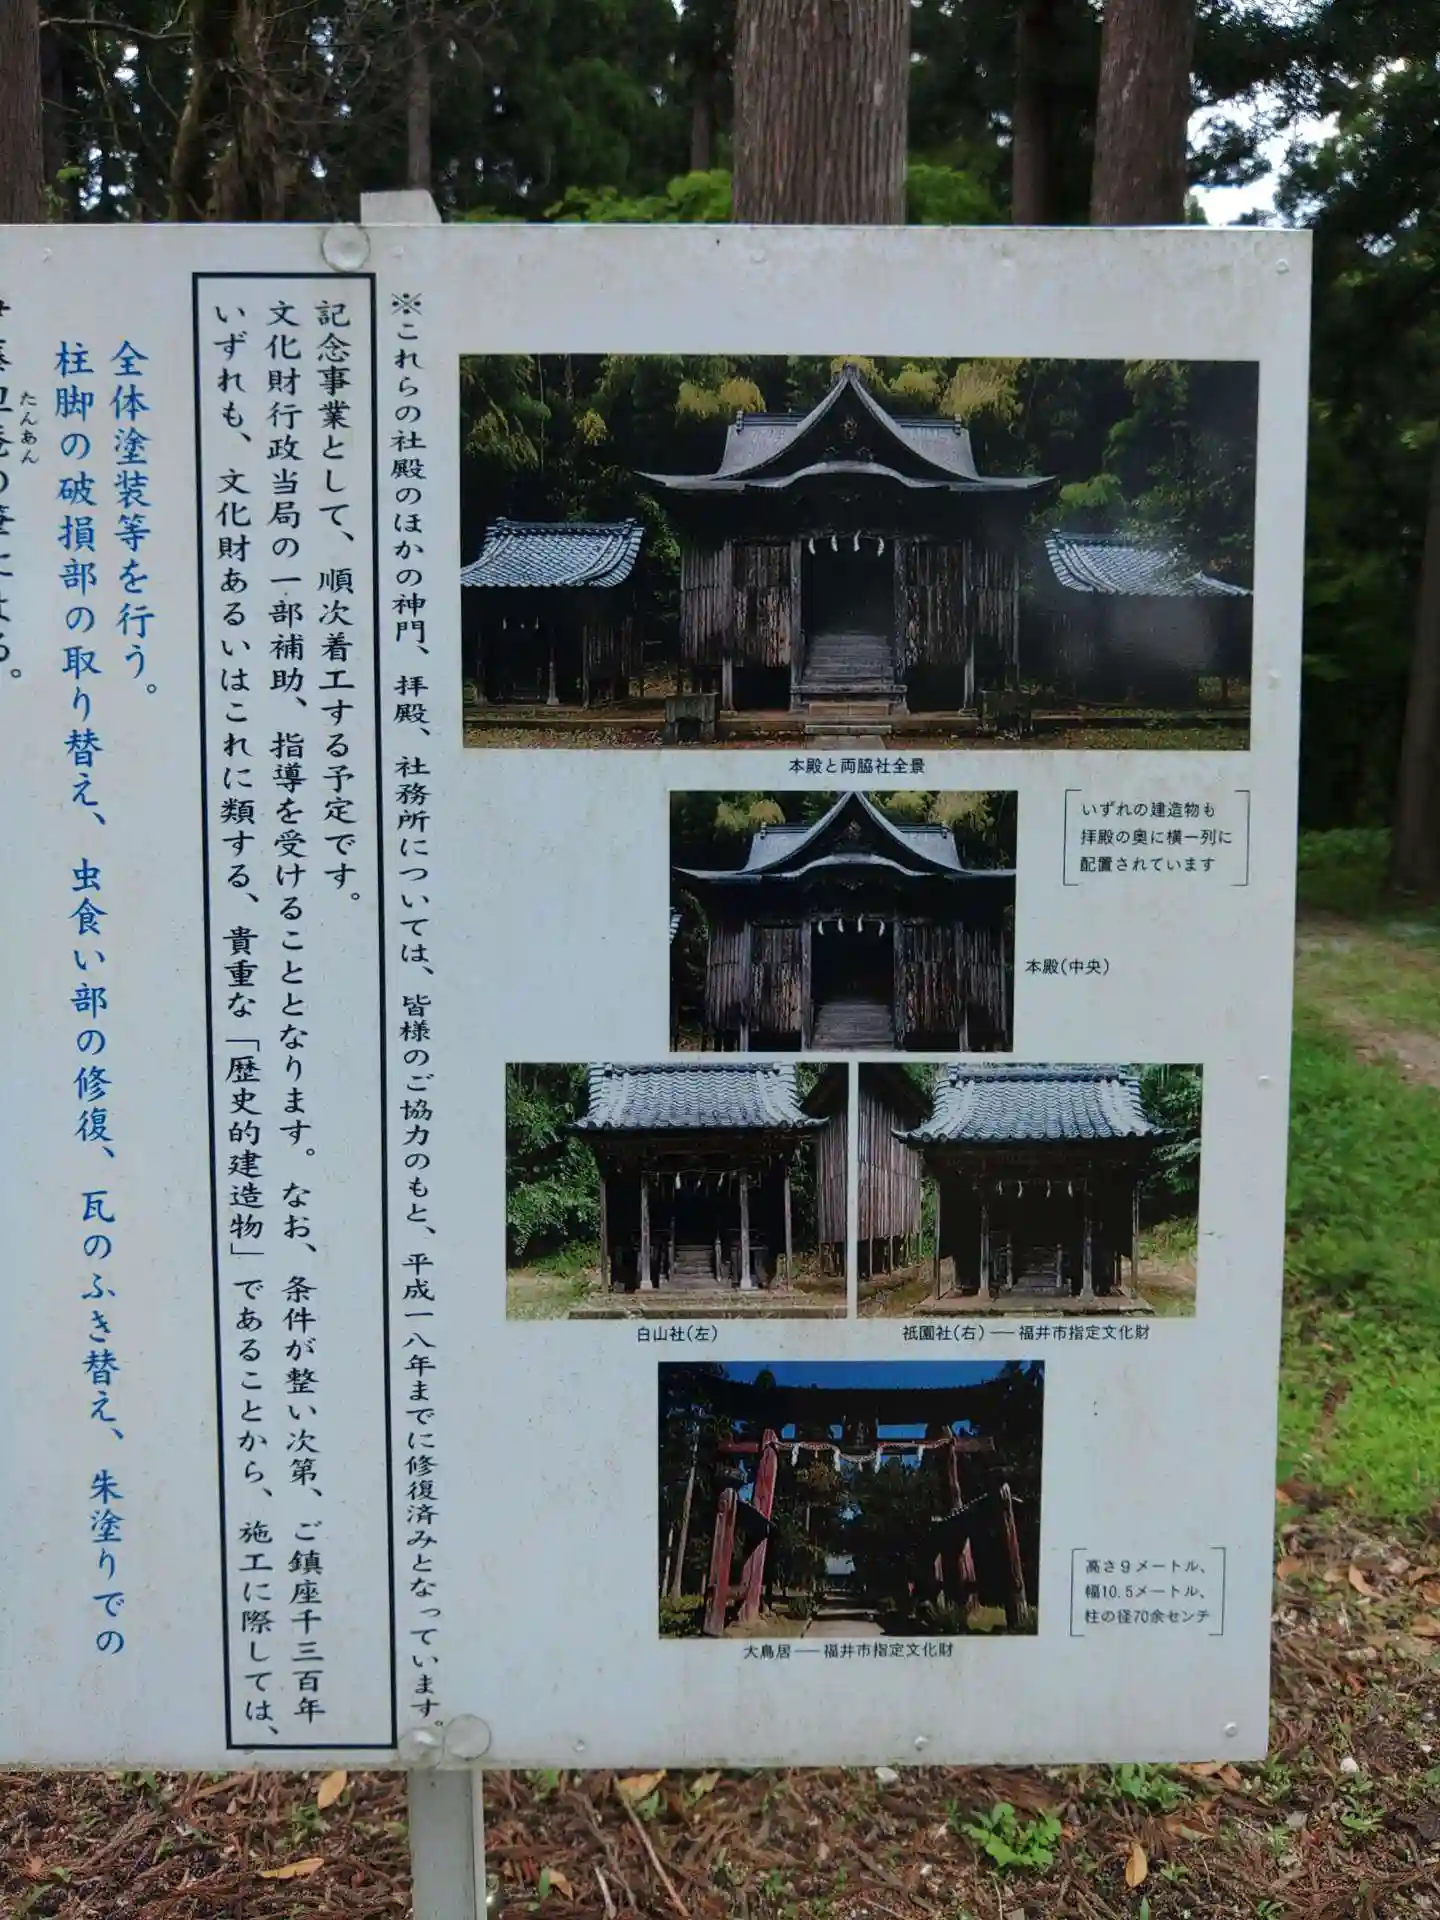 ※これらの社殿のほかの神門、拝殿、社務所については、皆様のご協力のもと、平成一八年までに修復済みとなっています。
いずれも、文化財あるいはこれに類する、貴重な「歴史的建造物」であることから、施工に際しては、
文化財行政当局の一部補助、指導を受けることとなります。なお、条件が整い次第、ご鎮座千三百年
記念事業として、順次着工する予定です。
全体塗装等を行う。
柱脚の破損部の取り替え、虫食い部の修復、瓦のふき替え、朱塗りでの
たんあん
本殿と両脇社全景
いずれの建造物も
拝殿の奥に横一列に
配置されています
本殿(中央)
白山社(左)
祇園社(右)―福井市指定文化財
大鳥居―福井市指定文化財
高さ9メートル、
幅10.5メートル、
柱の径70余センチ